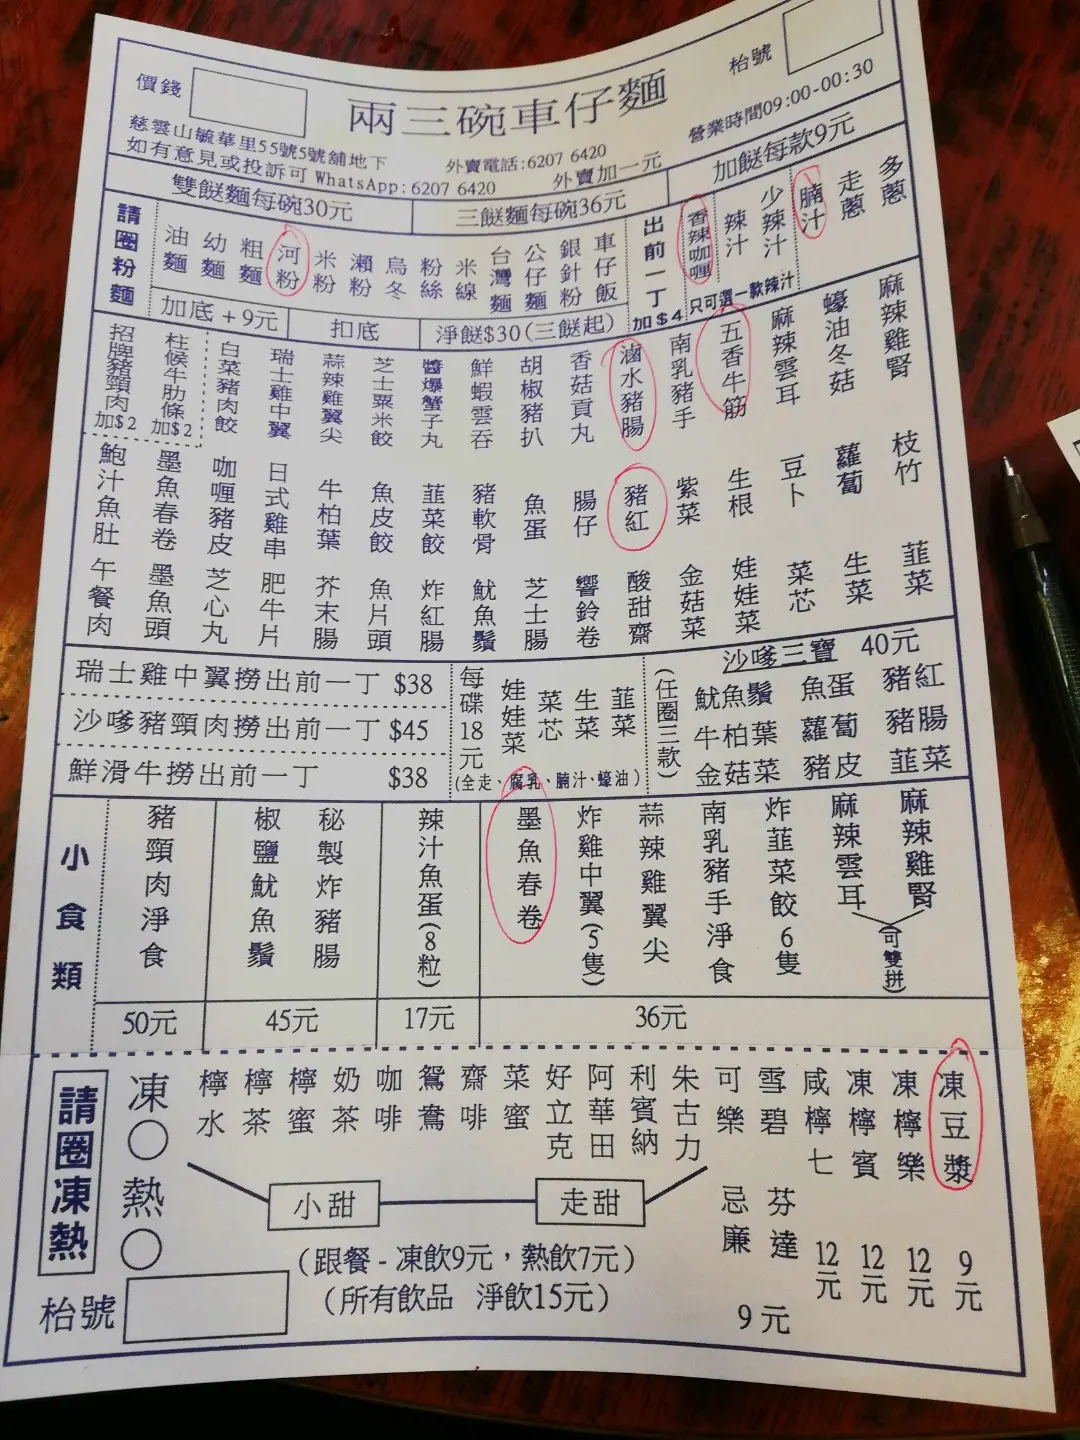 價錢
兩三碗車仔麵
枱號
慈雲山毓華里55號5號舖地下
外賣電話:6207 6420
營業時間09:00-00:30
如有意見或投訴可 WhatsApp: 6207 6420
外賣加一元
雙餸麵每碗30元
三餸麵每碗36元
加餸每款9元
請圈粉麵
油麵
幼麵
粗麵
河粉
米粉
瀨粉
烏冬
粉絲
米線
台灣麵
公仔麵
銀針粉
車仔飯
出前一丁加$4
香辣咖喱
辣汁
少辣汁
腩汁
走蔥
多蔥
只可選一款辣汁
加底 + 9元
扣底
淨餸$30(三餸起)
招牌豬頸肉加$2
柱候牛肋條加$2
白菜豬肉餃
瑞士雞中翼
蒜辣雞翼尖
芝士粟米餃
醬爆蟹子丸
鮮蝦雲吞
胡椒豬扒
香菇貢丸
滷水豬腸
南乳豬手
五香牛筋
麻辣雲耳
蠔油冬菇
麻辣雞腎
鮑汁魚肚
墨魚春卷
咖喱豬皮
日式雞串
牛柏葉
魚皮餃
韮菜餃
豬軟骨
魚蛋
腸仔
豬紅
紫菜
生根
豆卜
蘿蔔
枝竹
午餐肉
墨魚頭
芝心丸
肥牛片
芥末腸
魚片頭
炸紅腸
魷魚鬚
芝士腸
響鈴卷
酸甜齋
金菇菜
娃娃菜
菜芯
生菜
韮菜
瑞士雞中翼撈出前一丁 $38
沙嗲豬頸肉撈出前一丁 $45
鮮滑牛撈出前一丁 $38
每碟18元
娃娃菜
菜芯
生菜
韮菜
(全走、腐乳、腩汁、蠔油)
(任圈三款)
沙嗲三寶 40元
魷魚鬚 魚蛋 豬紅
牛柏葉 蘿蔔 豬腸
金菇菜 豬皮 韮菜
小食類
豬頸肉淨食
椒鹽魷魚鬚
秘製炸豬腸
辣汁魚蛋(8粒)
墨魚春卷
炸雞中翼(5隻)
蒜辣雞翼尖
南乳豬手淨食
炸韮菜餃6隻
麻辣雲耳
麻辣雞腎
(可雙拼)
50元
45元
17元
36元
請圈凍熱
凍○
熱○
檸水
檸茶
檸蜜
奶茶
咖啡
鴛鴦
齋啡
菜蜜
好立克
阿華田
利賓納
朱古力
可樂
雪碧
咸檸七
凍檸賓
凍檸樂
凍豆漿
小甜
走甜
忌廉
芬達
12元
12元
12元
9元
(跟餐 - 凍飲9元，熱飲7元)
(所有飲品 淨飲15元)
9元
枱號